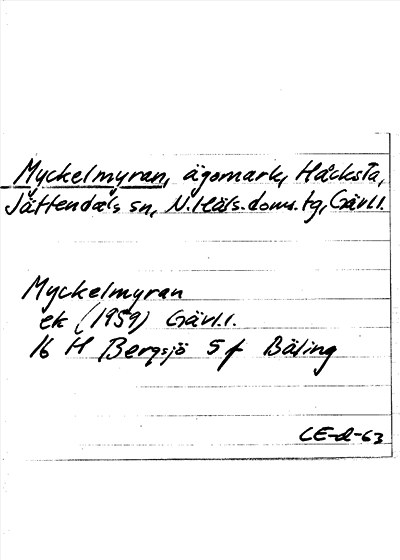 Myckelmyran, ägomark, Håcksta,
Jättendals sn, N.Häls.doms.tg, Gävl.l.
Myckelmyran
ek (1959) Gävl.l.
16 H Bergsjö 5 f Bäling
CE-d-63